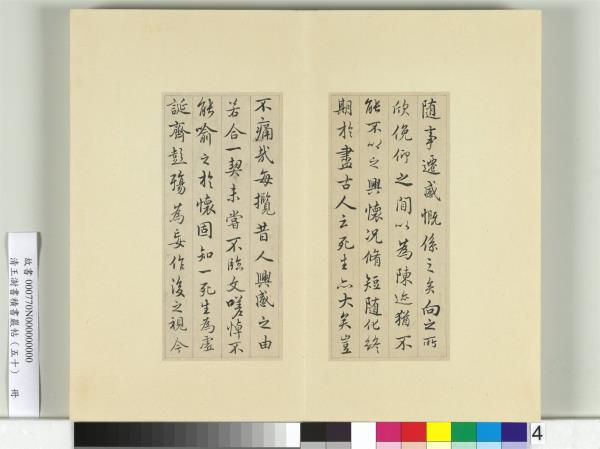 随事遷感慨係之矣向之所
欣俛仰之間以為陳迹猶不
能不以之興懷况脩短随化終
期於盡古人云死生亦大矣豈
不痛哉每攬昔人興感之由
若合一契未嘗不臨文嗟悼不
能喻之於懷固知一死生為虚
誕齊彭殤為妄作後之視今
故書 000770N000000000
清王澍書積書巖帖（五十） 冊
4